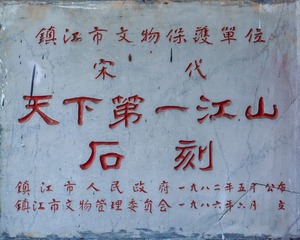 鎮江市文物保護單位
宋代
天下第一江山
石刻
鎮江市人民政府一九八二年五月公布
鎮江市文物管理委員会一九八六年六月立